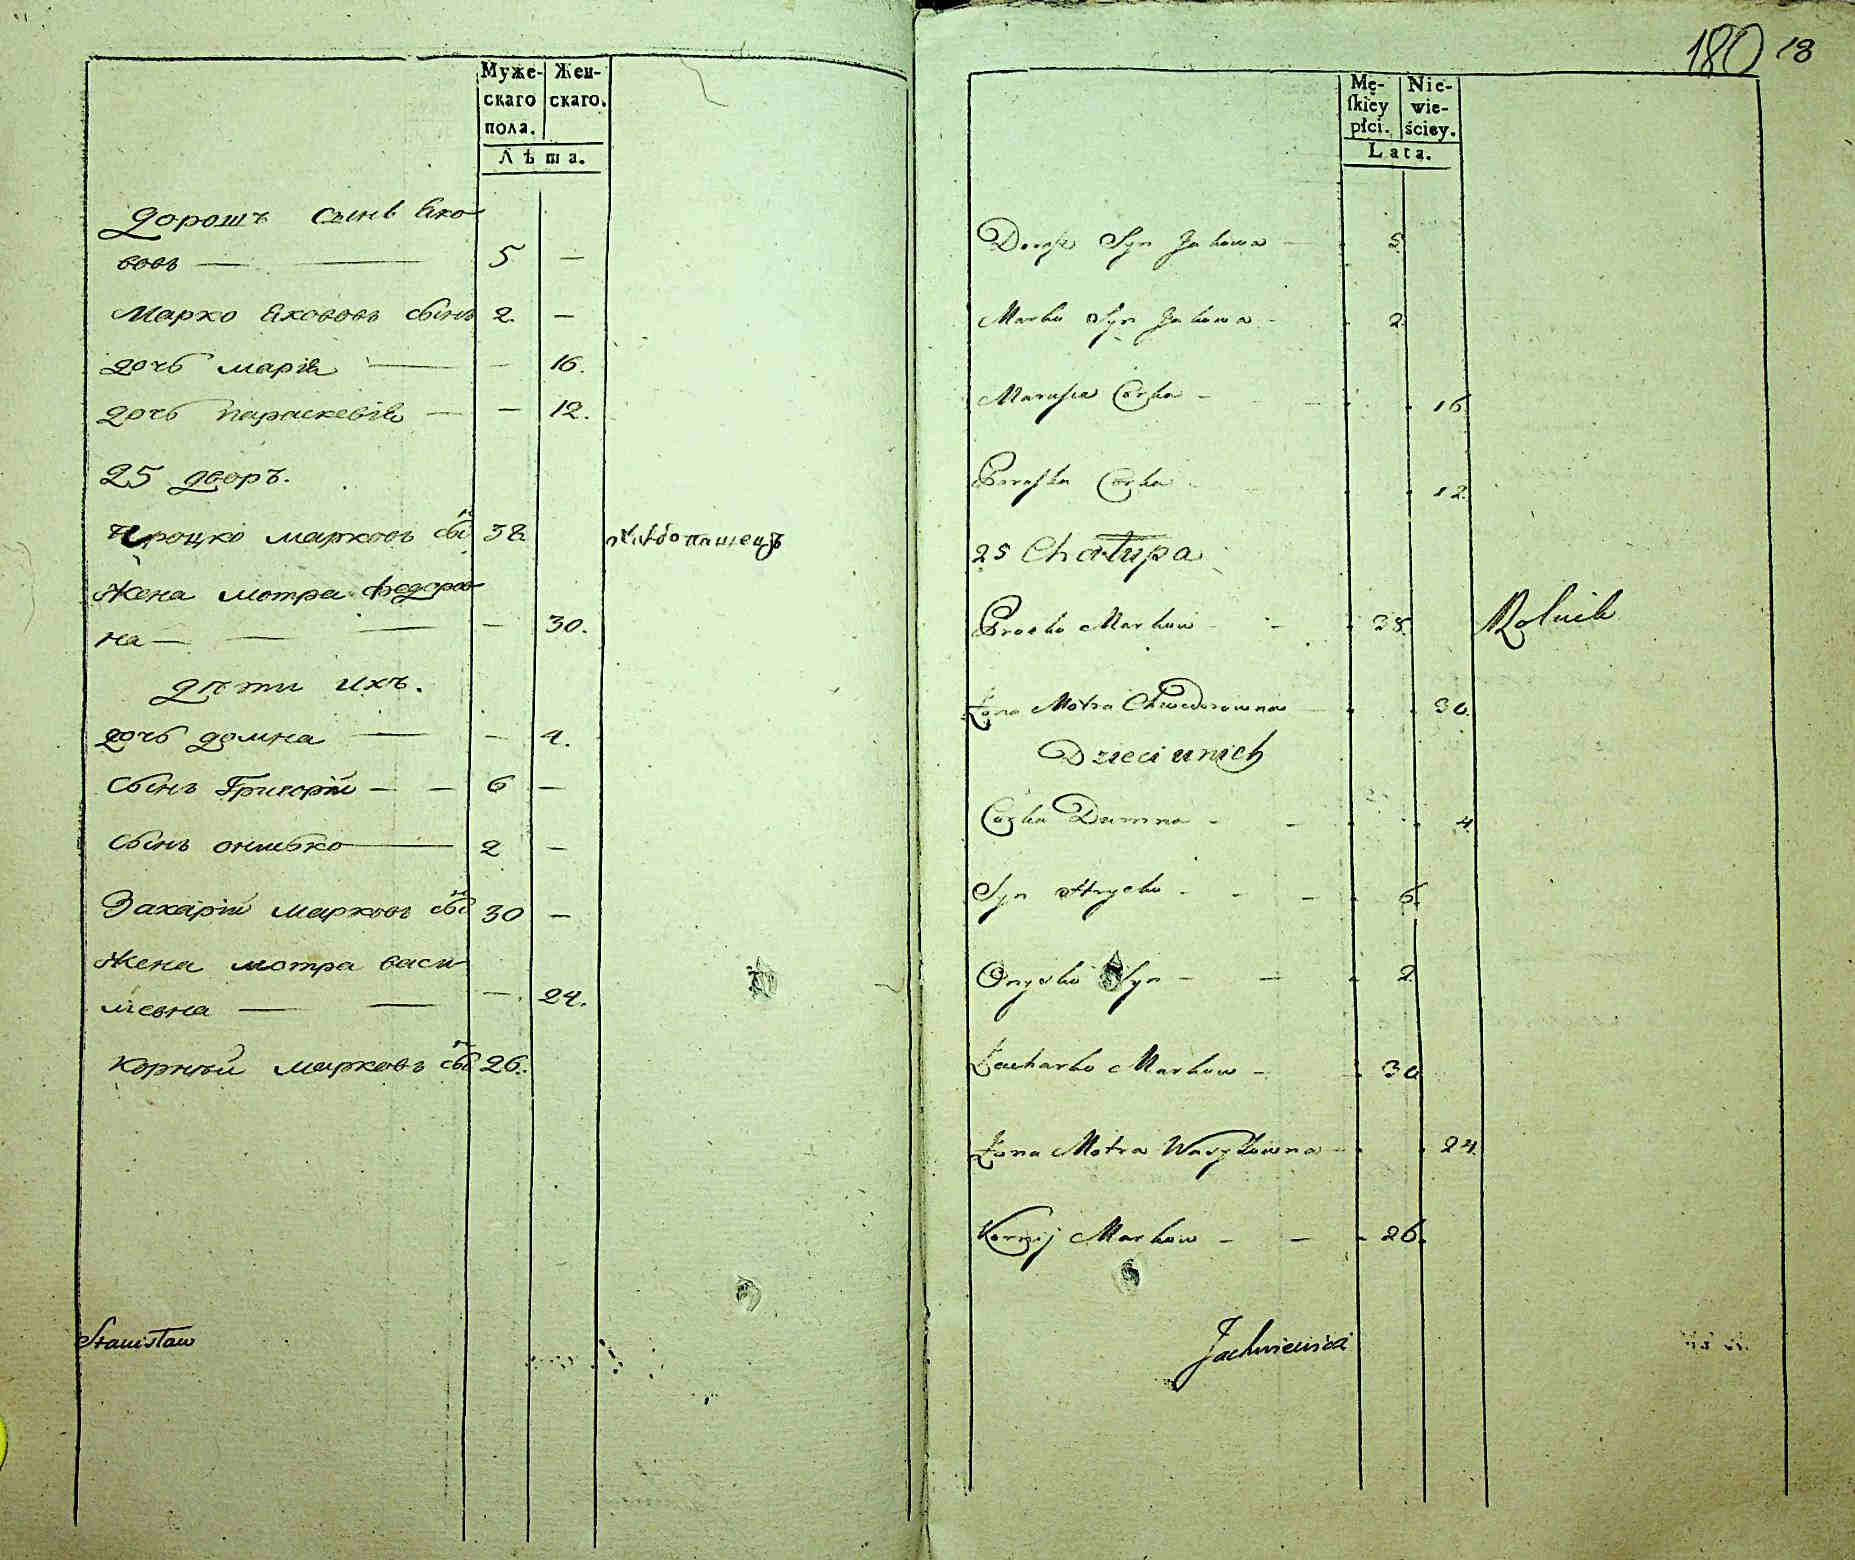 Муже- Жен-
скаго скаго.
пола.
Лѣта.
Дорошъ сынъ Яко
вовъ — — 5 —
Марко Якововъ сынъ 2. —
дочь марія — — 16.
дочь параскевія — — 12.
25 дворъ.
Процко марковъ сы 38. хлѣбопашецъ
Жена мотра федоров
на — — — — 30.
дѣти ихъ.
дочь домна — — 4.
Сынъ Григорій — — 6 —
Сынъ онисько — 2 —
Захарій марковъ сы 30 —
Жена мотра васи
лiевна — — — 24.
Корнѣй марковъ сы 26.
Stanisław
180 18
Mę- Nie-
skiey wie-
płci. ściey.
Lata.
Dorosz Syn Jakowa — 5
Marko Syn Jakowa — 2
Marusia Corka — 16
Paraska Corka 12
25 Chałupa
Procko Markow — — 38. Rolnik
Żona Motra Chwedorowna — 30.
Dzieci unich
Corka Dumna — — 4
Syn Hrycko — — — 6.
Onysko Syn — — 2
Zacharko Markow — 30
Żona Motra Wasylowna — 24.
Kornij Markow — — 26.
Jachniewicz